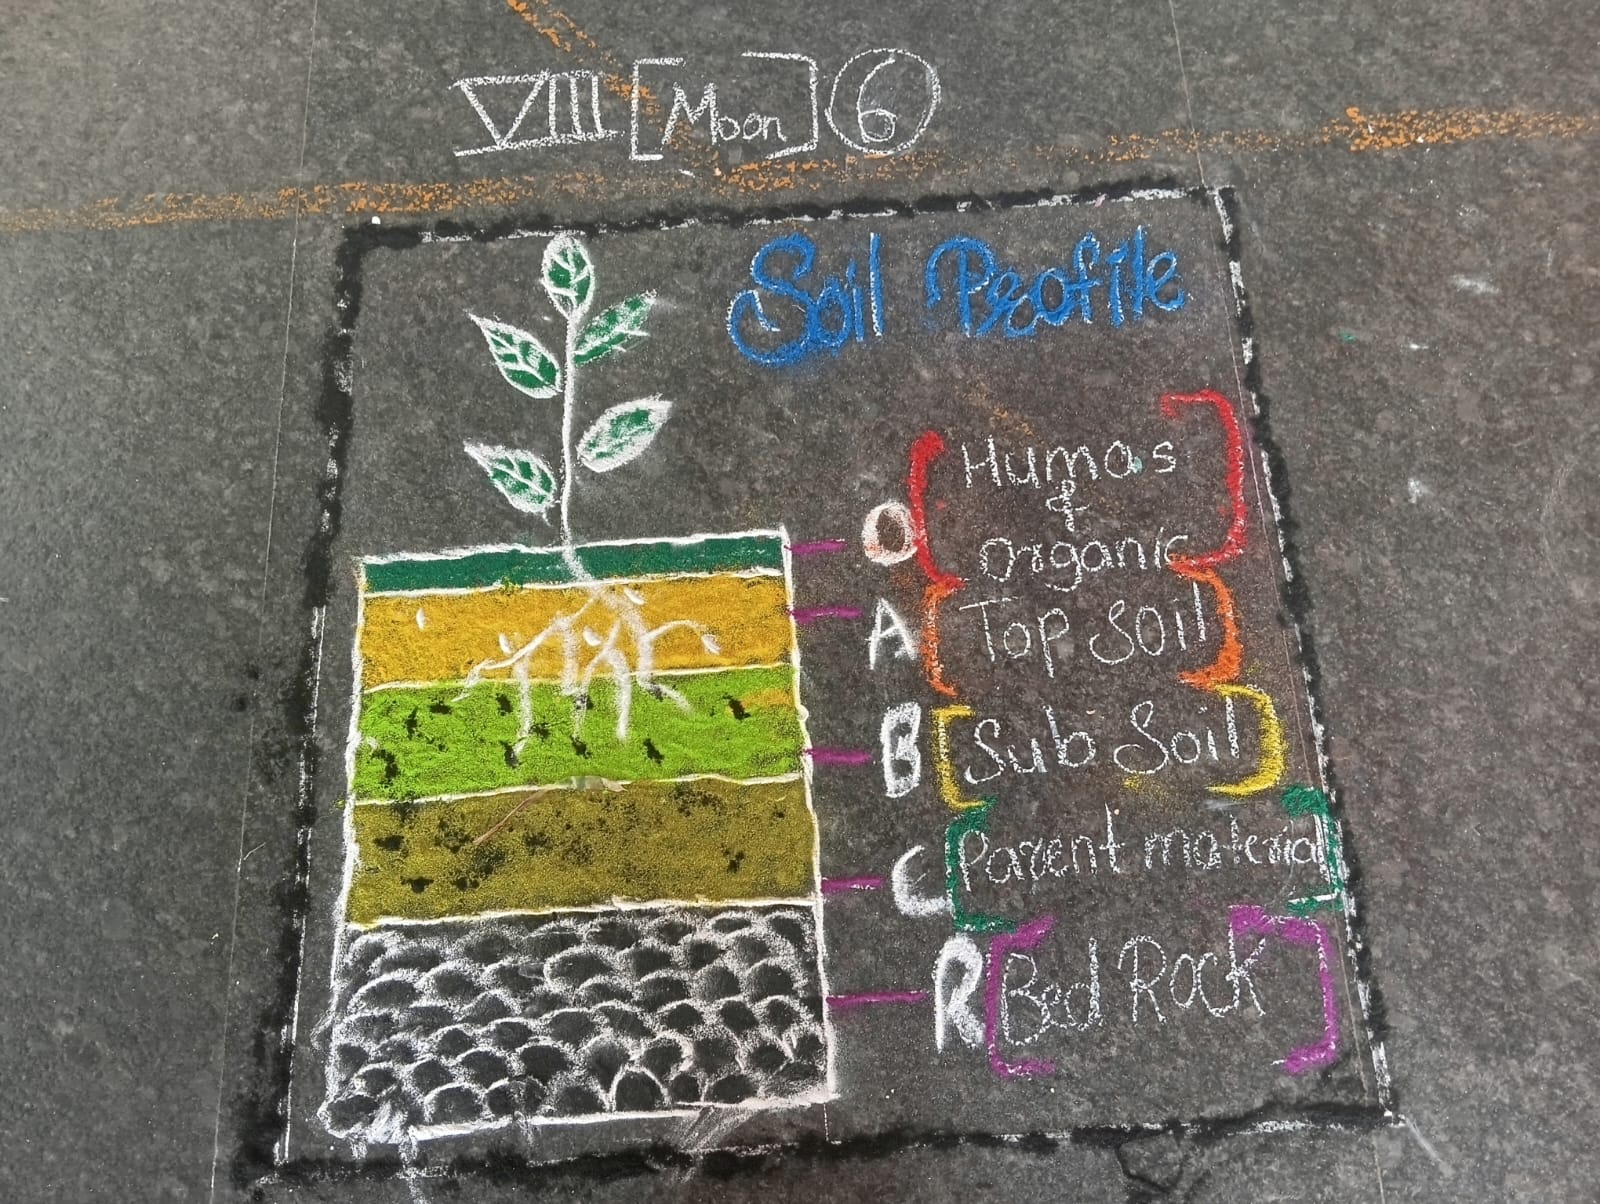 VIII [Moon] 6
Soil Profile
O [Humas
&
Organic]
A [Top Soil]
B [Sub Soil]
C [Parent material]
R [Bed Rock]